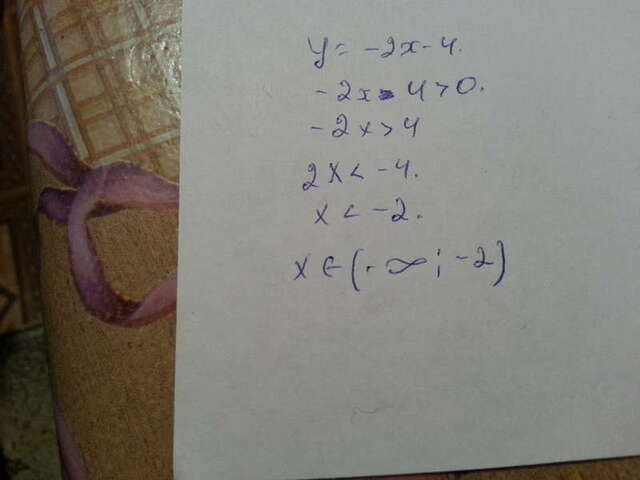 y = -2x-4.
-2x-4>0.
-2x>4
2x<-4.
x<-2.
x∈(-∞;-2)